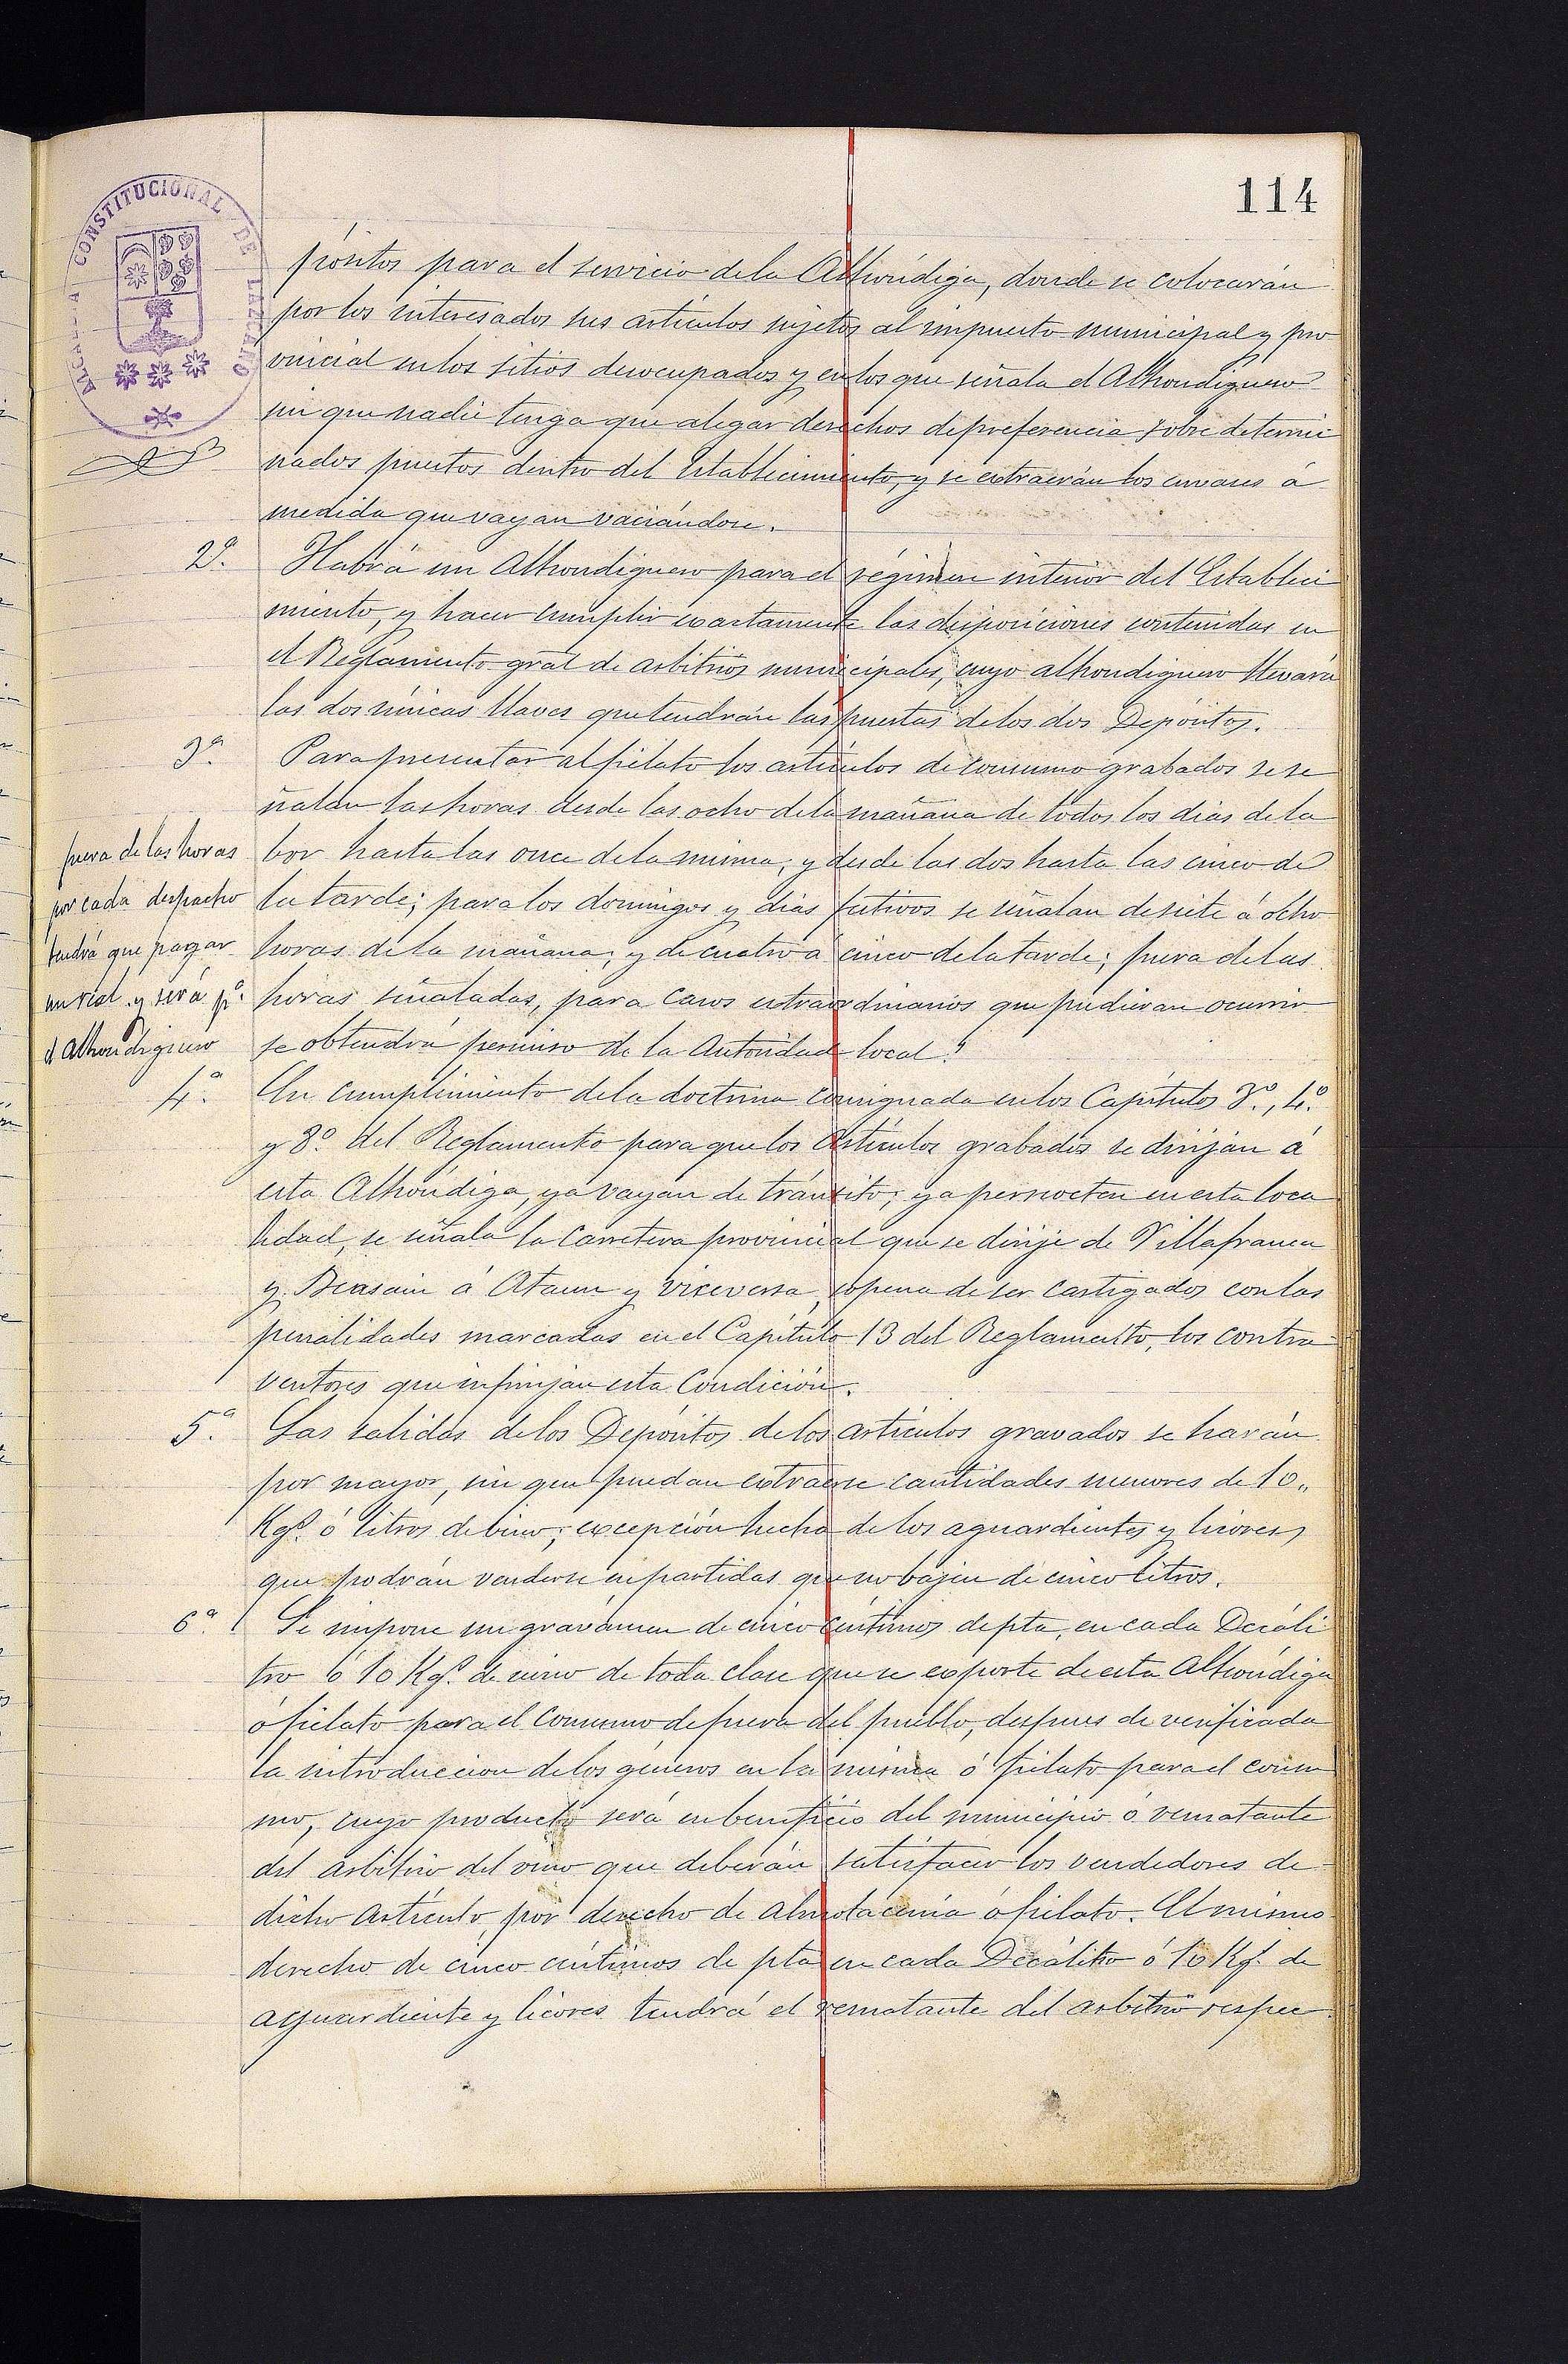 114
ALCALDIA CONSTITUCIONAL DE LAZCANO
pósitos para el servicio de la Alhóndiga, donde se colocarán
por los interesados sus artículos sujetos al impuesto municipal y pro
vincial en los sitios desocupados y en los que señala el Alhondiguero
sin que nadie tenga que alegar derechos de preferencia sobre determi
nados puestos dentro del Establecimiento, y se extraerán los envases á
medida que vayan vaciándose.
2ª. Habrá un Alhondiguero para el régimen interior del Estableci
miento, y hacer cumplir exactamente las disposiciones contenidas en
el Reglamento gral de arbitrios municipales, cuyo alhondiguero llevará
las dos únicas llaves que tendrán las puertas de los dos Depósitos.
3ª. Para presentar al fielato los artículos de consumo grabados se se
ñalan las horas desde las ocho de la mañana de todos los dias de la
bor hasta las once de la misma; y desde las dos hasta las cinco de
la tarde; para los domingos y dias festivos se señalan de siete á ocho
horas de la mañana; y de cuatro á cinco de la tarde; fuera de las
horas señaladas, para casos extraordinarios que pudieran ocurrir
se obtendrá permiso de la Autoridad local.
fuera de las horas
por cada despacho
tendrá que pagar
un real y será pª.
el Alhondiguero
4ª. En cumplimiento de la doctrina consignada en los Capítulos 3º., 4º.
y 8º. del Reglamento para que los Artículos grabados se dirijan á
esta Alhóndiga, ya vayan de tránsito, ya pernocten en esta loca
lidad, se señala la Carretera provincial que se dirije de Villafranca
y Beasain á Ataun y viceversa, sopena de ser castigados con las
penalidades marcadas en el Capítulo 13 del Reglamento, los contra
ventores que infrinjan esta Condición.
5ª. Las salidas de los Depósitos de los artículos gravados se harán
por mayor, sin que puedan extraerse cantidades menores de 10,,
Kgs. ó litros de vino; excepción hecha de los aguardientes y licores,
que podrán venderse en partidas que no bajen de cinco litros.
6ª. Se impone un gravámen de cinco céntimos de pta, en cada Decáli
tro ó 10 Kgs. de vino de toda clase que se exporte de esta Alhóndiga
ó fielato para el consumo de fuera del pueblo, despues de verificada
la introduccion de los géneros en la misma ó fielato para el consu
mo, cuyo producto será en beneficio del municipio ó rematante
del arbitrio del vino que deberán satisfacer los vendedores de
dicho artículo, por derecho de almotacenía ó fielato. El mismo
derecho de cinco céntimos de pta en cada Decálitro ó 10 Kgs. de
aguardiente y licores tendrá el rematante del arbitrio respec